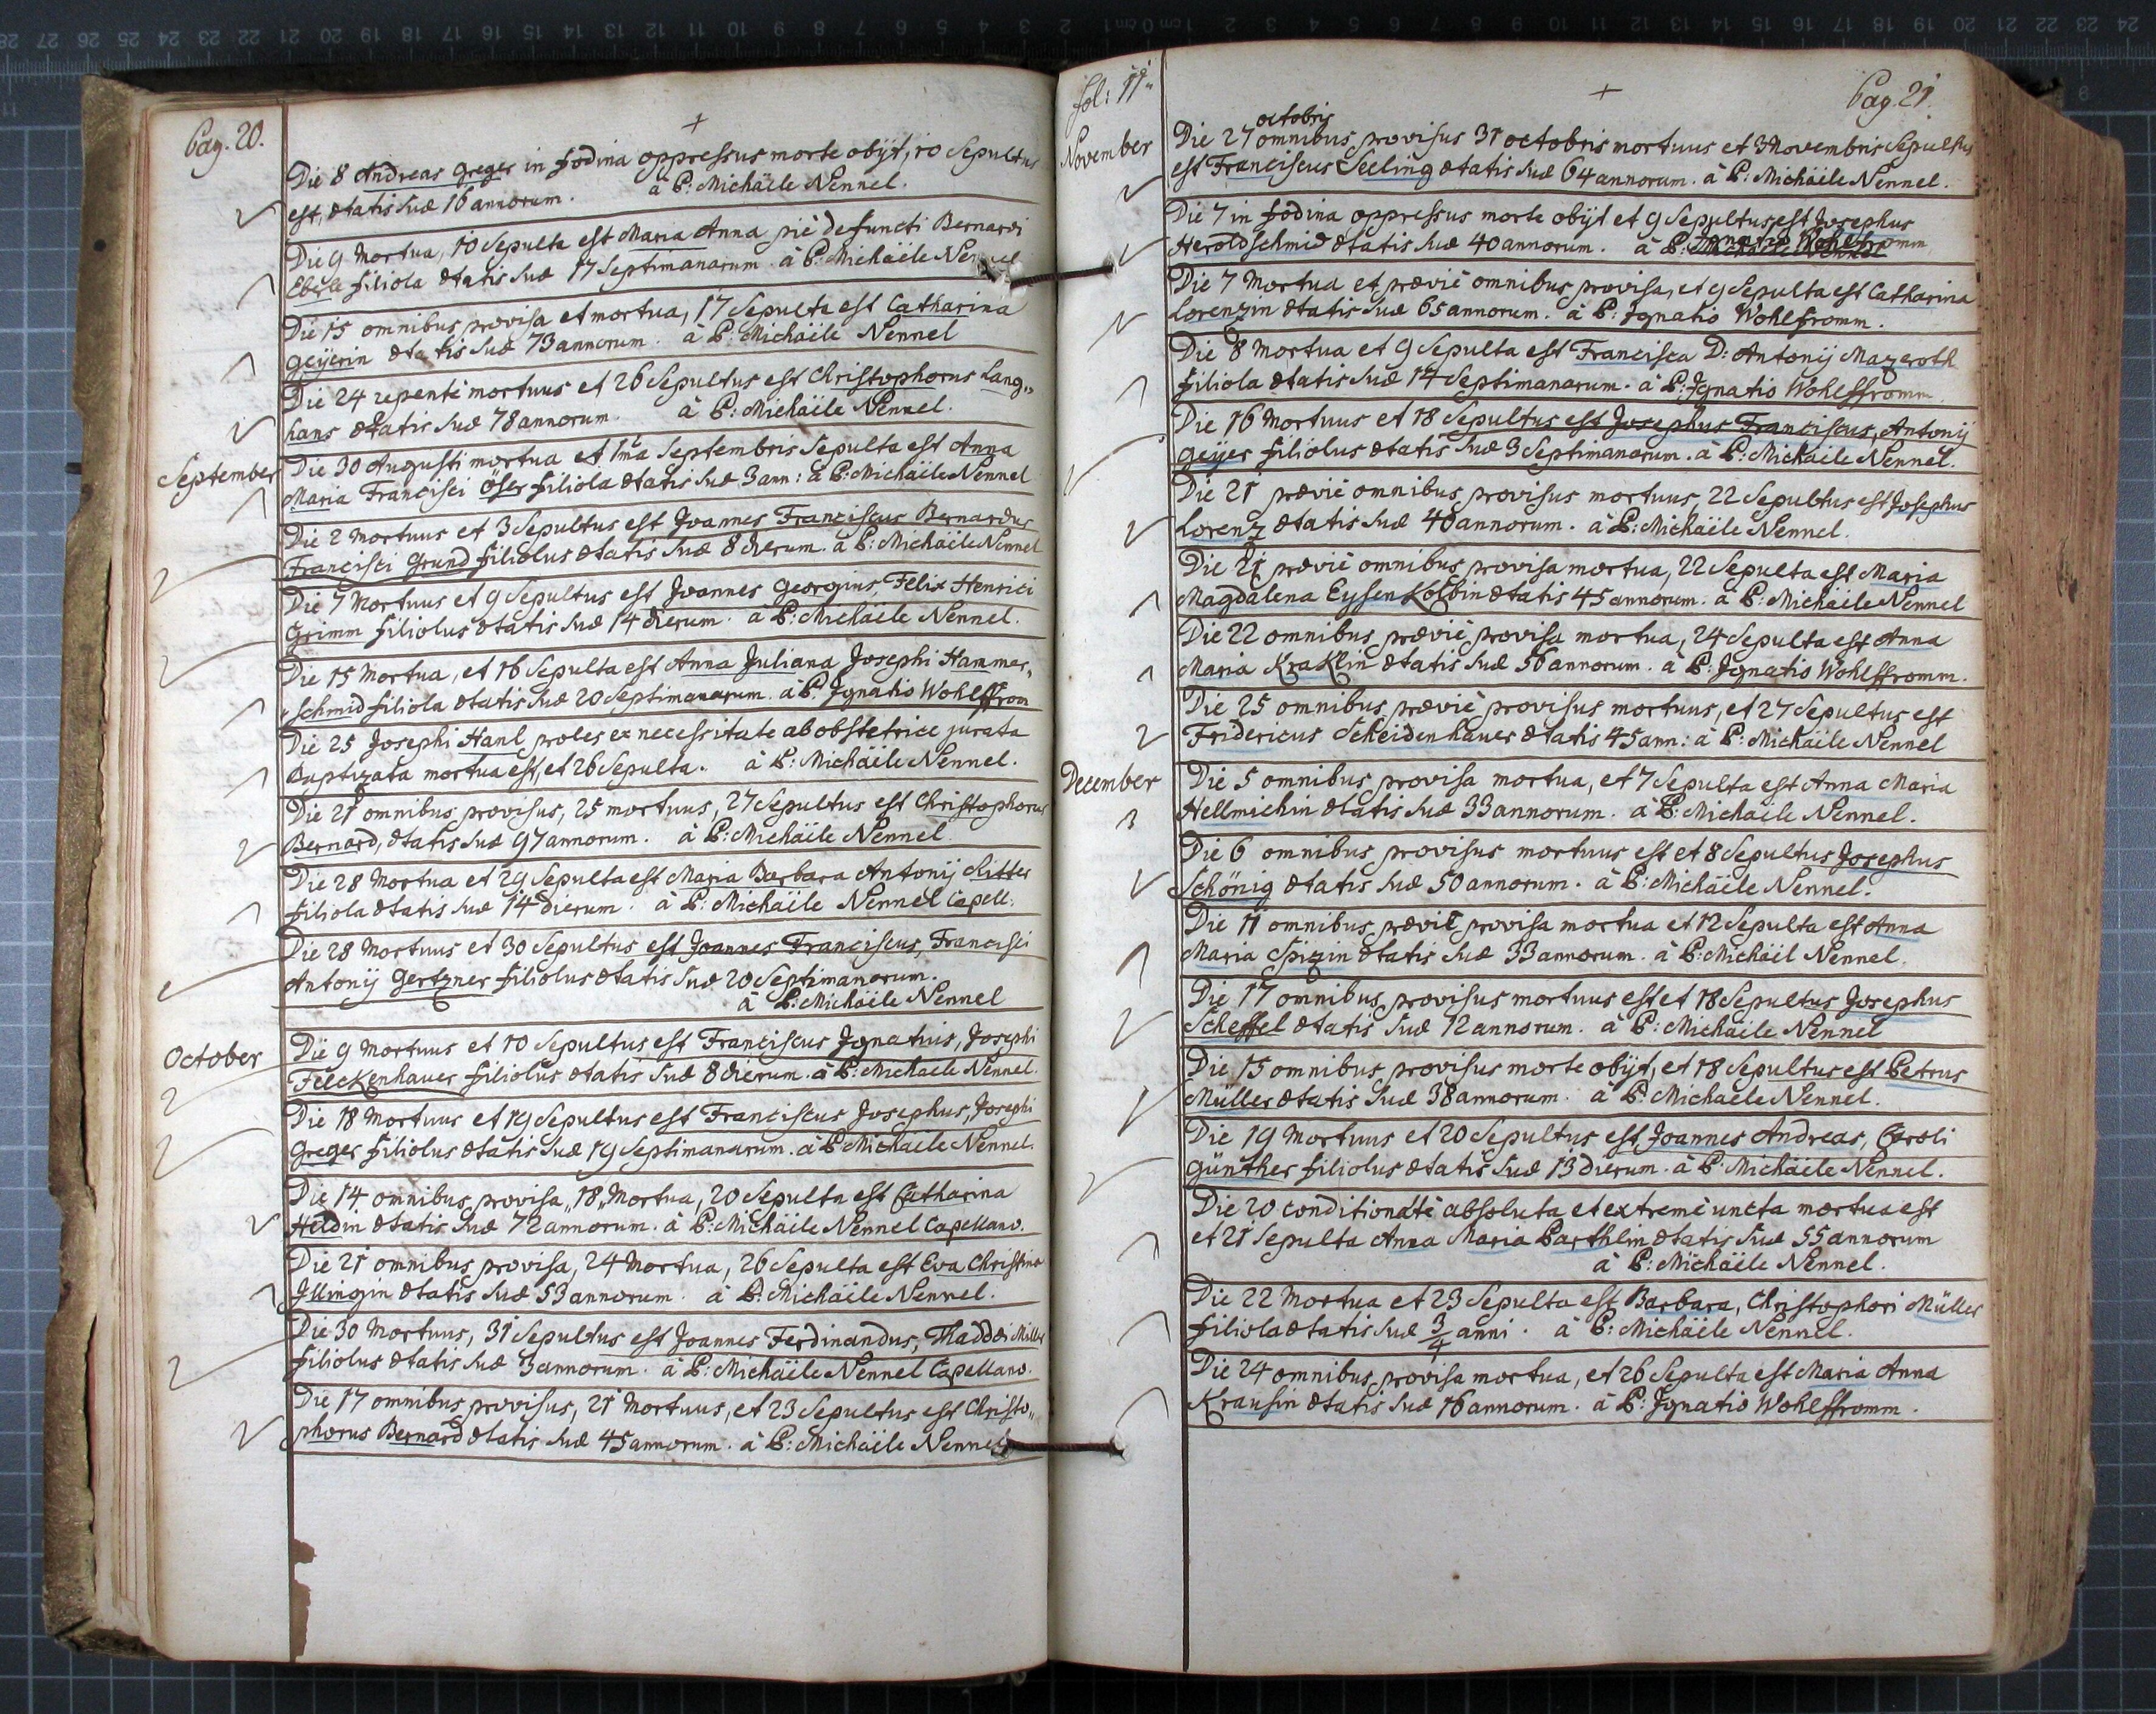 Pag. 20.
+
Die 8 Andreas Greger in fodina oppressus morte obijt, 10 Sepultus
est, ætatis suæ 16 annorum. à P: Michäele Nennel.
Die 9 Mortua, 10 Sepulta est Maria Anna piè defuncti Bernardi
Eberle filiola ætatis suæ 17 Septimanarum. à P: Michäele Nennel
Die 15 omnibus provisa et mortua, 17 Sepulta est Catharina
Geijerin ætatis suæ 73 annorum. à P: Michäele Nennel
Die 24 repentè mortuus et 26 Sepultus est Christophorus Lang„
hans ætatis suæ 78 annorum. à P: Michäele Nennel.
September
Die 30 Augusti mortua et 1ma Septembris Sepulta est Anna
Maria Francisci Öser filiola ætatis suæ 3 ann: à P: Michäele Nennel
Die 2 Mortuus et 3 Sepultus est Joannes Franciscus Bernardus
Francisci Grund filiolus ætatis suæ 8 dierum. à P: Michäele Nennel
Die 7 Mortuus et 9 Sepultus est Joannes Georgius, Felix Henrici
Grimm filiolus ætatis suæ 14 dierum. à P: Michäele Nennel.
Die 15 Mortua, et 16 Sepulta est Anna Juliana Josephi Hammer„
„schmid filiola ætatis suæ 20 Septimanarum. à P. Ignatio Wohlffrom
Die 25 Josephi Hanl proles ex necessitate ab obstetrice jurata
baptizata mortua est, et 26 Sepulta. à P: Michäele Nennel.
Die 21 omnibus provisus, 25 mortuus, 27 Sepultus est Christophorus
Bernard, ætatis suæ 97 annorum. à P: Michäele Nennel
Die 28 Mortua et 29 Sepulta est Maria Barbara Antonij Ritter
filiola ætatis suæ 14 dierum. à P: Michäele Nennel Capell.
Die 28 Mortuus et 30 Sepultus est Joannes Franciscus, Francisci
Antonij Gertzner filiolus ætatis suæ 20 Septimanorum.
à P: Michäele Nennel
October
Die 9 Mortuus et 10 Sepultus est Franciscus Ignatius, Josephi
Felckenhauer filiolus ætatis suæ 8 dierum. à P: Michaele Nennel.
Die 18 Mortuus et 19 Sepultus est Franciscus Josephus, Josephi
Greger filiolus ætatis suæ 19 Septimanarum. à P: Michaele Nennel.
Die 14 omnibus provisa, „18„ Mortua, 20 Sepulta est Catharina
Heldin ætatis suæ 72 annorum. à P: Michäele Nennel Capellano.
Die 21 omnibus provisa, 24 Mortua, 26 Sepulta est Eva Christina
Illingin ætatis suæ 53 annorum. à P: Michäele Nennel.
Die 30 Mortuus, 31 Sepultus est Joannes Ferdinandus, Thaddæi Miller
filiolus ætatis suæ 3 annorum. à P: Michäele Nennel Capellano.
Die 17 omnibus provisus, 21 Mortuus, et 23 Sepultus est Christo„
phorus Bernard ætatis suæ 45 annorum. à P: Michäele Nennel
fol: 11„
+
Pag. 21.
November
octobris
Die 27 omnibus provisus 31 octobris mortuus et 3 Novembris Sepultus
est Franciscus Seeling ætatis suæ 64 annorum. à P: Michäele Nennel.
Die 7 in fodina oppressus morte obijt et 9 Sepultus est Josephus
Heroldschmid ætatis suæ 40 annorum. à P:
Die 7 Mortua et præviè omnibus provisa, et 9 Sepulta est Catharina
Lorenzin ætatis suæ 65 annorum. à P: Ignatio Wohlfromm.
Die 8 Mortua et 9 Sepulta est Francisca D: Antonij Mazeroth
filiola ætatis suæ 14 Septimanarum. à P: Ignatio Wohlffromm.
Die 16 Mortuus et 18 Sepultus est Josephus Franciscus, Antonij
Geijer filiolus ætatis suæ 3 Septimanarum. à P: Michaele Nennel.
Die 21 prævie omnibus provisus mortuus, 22 Sepultus est Josephus
Lorenz ætatis suæ 40 annorum. à P: Michäele Nennel.
Die 21 præviè omnibus provisa mortua, 22 Sepulta est Maria
Magdalena Eysen Kolbin ætatis 45 annorum. à P: Michäele Nennel
Die 22 omnibus præviè provisa mortua, 24 Sepulta est Anna
Maria KraKlin ætatis suæ 56 annorum. à P: Ignatio Wohlffromm.
Die 25 omnibus præviè provisus mortuus, et 27 Sepultus est
Fridericus Scheidenhauer ætatis 45 ann: à P: Michäele Nennel
December
Die 5 omnibus provisa mortua, et 7 Sepulta est Anna Maria
Hellmichin ætatis suæ 33 annorum. à P: Michaele Nennel.
Die 6 omnibus provisus mortuus est et 8 Sepultus Josephus
Schönig ætatis suæ 50 annorum. à P: Michäele Nennel.
Die 11 omnibus prævie provisa mortua et 12 Sepulta est Anna
Maria Spizin ætatis suæ 33 annorum. à P: Michäel Nennel.
Die 17 omnibus provisus mortuus est et 18 Sepultus Josephus
Scheffel ætatis suæ 12 annorum. à P: Michäele Nennel
Die 15 omnibus provisus morte obijt, et 18 Sepultus est Petrus
Müller ætatis suæ 38 annorum. à P: Michaele Nennel.
Die 19 Mortuus et 20 Sepultus est Joannes Andreas, Caroli
Günther filiolus ætatis suæ 13 dierum. à P: Michäele Nennel.
Die 20 conditionatè absoluta et extremè uncta mortua est
et 21 Sepulta Anna Maria Barthlin ætatis suæ 55 annorum
à P: Michäele Nennel.
Die 22 Mortua et 23 Sepulta est Barbara, Christophori Müller
filiola ætatis suæ 3/4 anni. à P: Michäele Nennel.
Die 24 omnibus provisa mortua, et 26 Sepulta est Maria Anna
Krausin ætatis suæ 16 annorum. à P: Ignatio Wohlffromm.